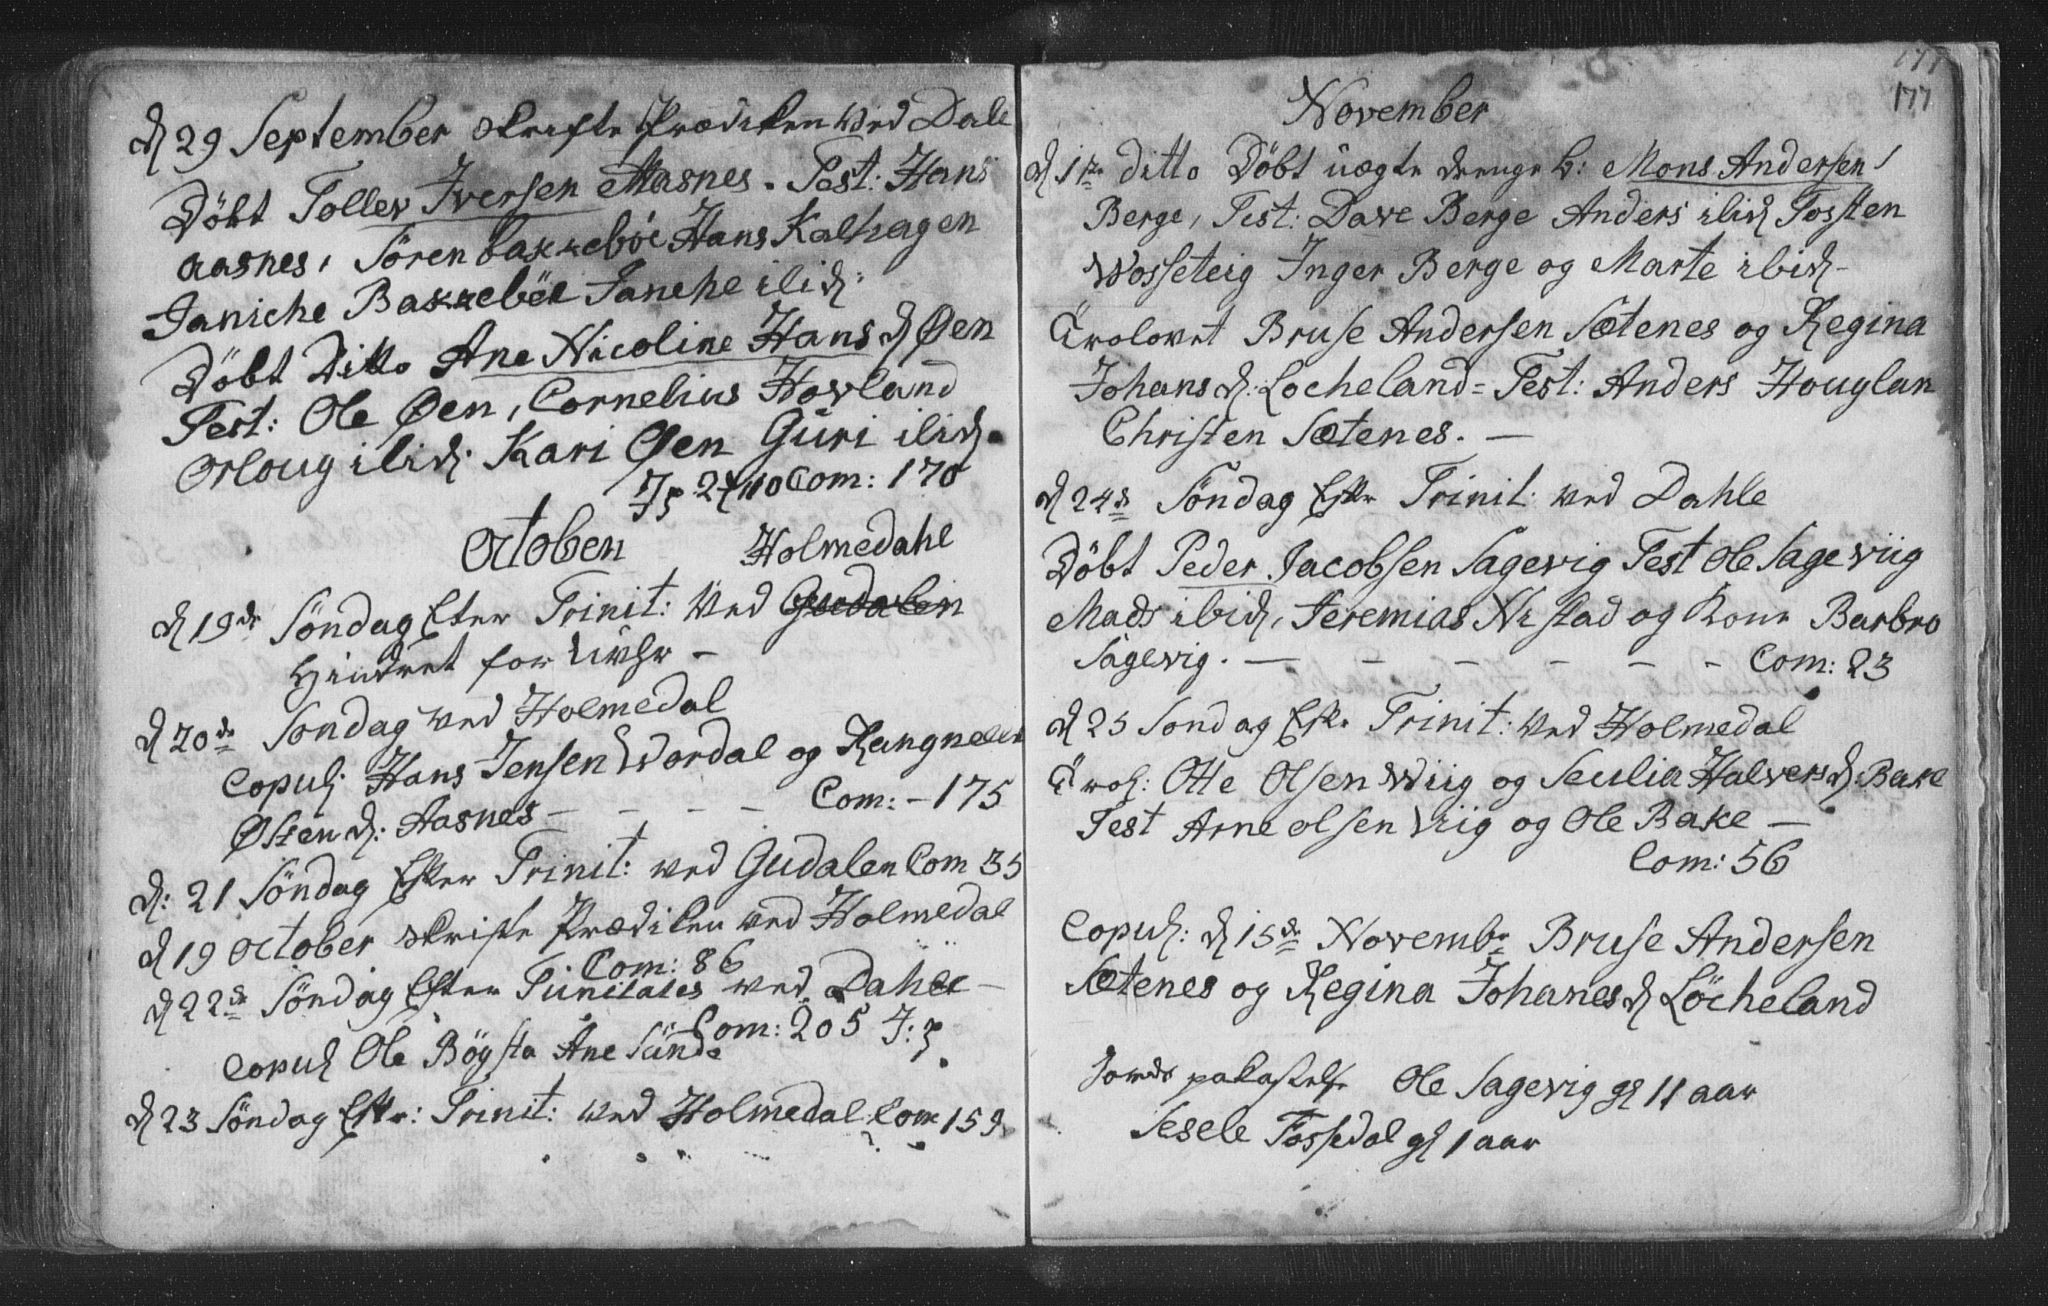 d 29 September skrifte Prædiken ved Dale
Döbt Tollev Iversen Aasnes. Test: Hans
Aasnes, Sören Bakkeböe Hans Kalhagen
Janiche Bakkeböe Janche ibid:
Döbt Ditto Ane Nicoline Hans d Øen
Test: Ole Øen, Cornelius Hovland
Orloug ibid: Kari Øen Guri ibid.
Com: 170
October
Holmedahl
d 19de Söndag Efter Trinit: ved Gudalen
Hindret for Uvejr –
d 20de Söndag ved Holmedal
Copul: Hans Jensen Wordal og Rangnele
Østen d: Aasnes – – – – Com: – 175
d: 21 Söndag Efter Trinit: ved Gudalen Com 35
d 19 October skrifte Prædiken ved Holmedal
Com: 86
d 22de Söndag Efter Trinitates ved Dahle –
Com: 205
Copul Ole Bögsta Ane Sünde
d 23 Söndag Eftr: Trinit: ved Holmedal Com 159
177
177
November
d 1te ditto Döbt uægte drenge b: Mons Andersen
Berge, Test: Dave Berge Anders ibid Tosten
Wosseteig Inger Berge og Marte ibid –
Trolovet Bruse Andersen Sætenes og Regina
Johans d: Locheland = Test: Anders Houglan
Christen Sætenes. –
d 24de Söndag Eftr Trinit: ved Dahle
Döbt Peder Jacobsen Sagevig Test Ole Sageviig
Mads ibid, Jeremias Nistad og Kone Barbro
Sagevig. – – – – – – Com: 23
d 25 Söndag Eftr Trinit: ved Holmedal
Trol: Otte Olsen Wiig og Seulia Halvers d: Bake
Test Arne Olsen Viig og Ole Bake –
Com: 56
Copul: d 15de Novembr Bruse Andersen
Sætenes og Regina Johanes d Löcheland
Jords paakastelse Ole Sagevig gl 11 aar
Sesele Fossedal gl 1 aar